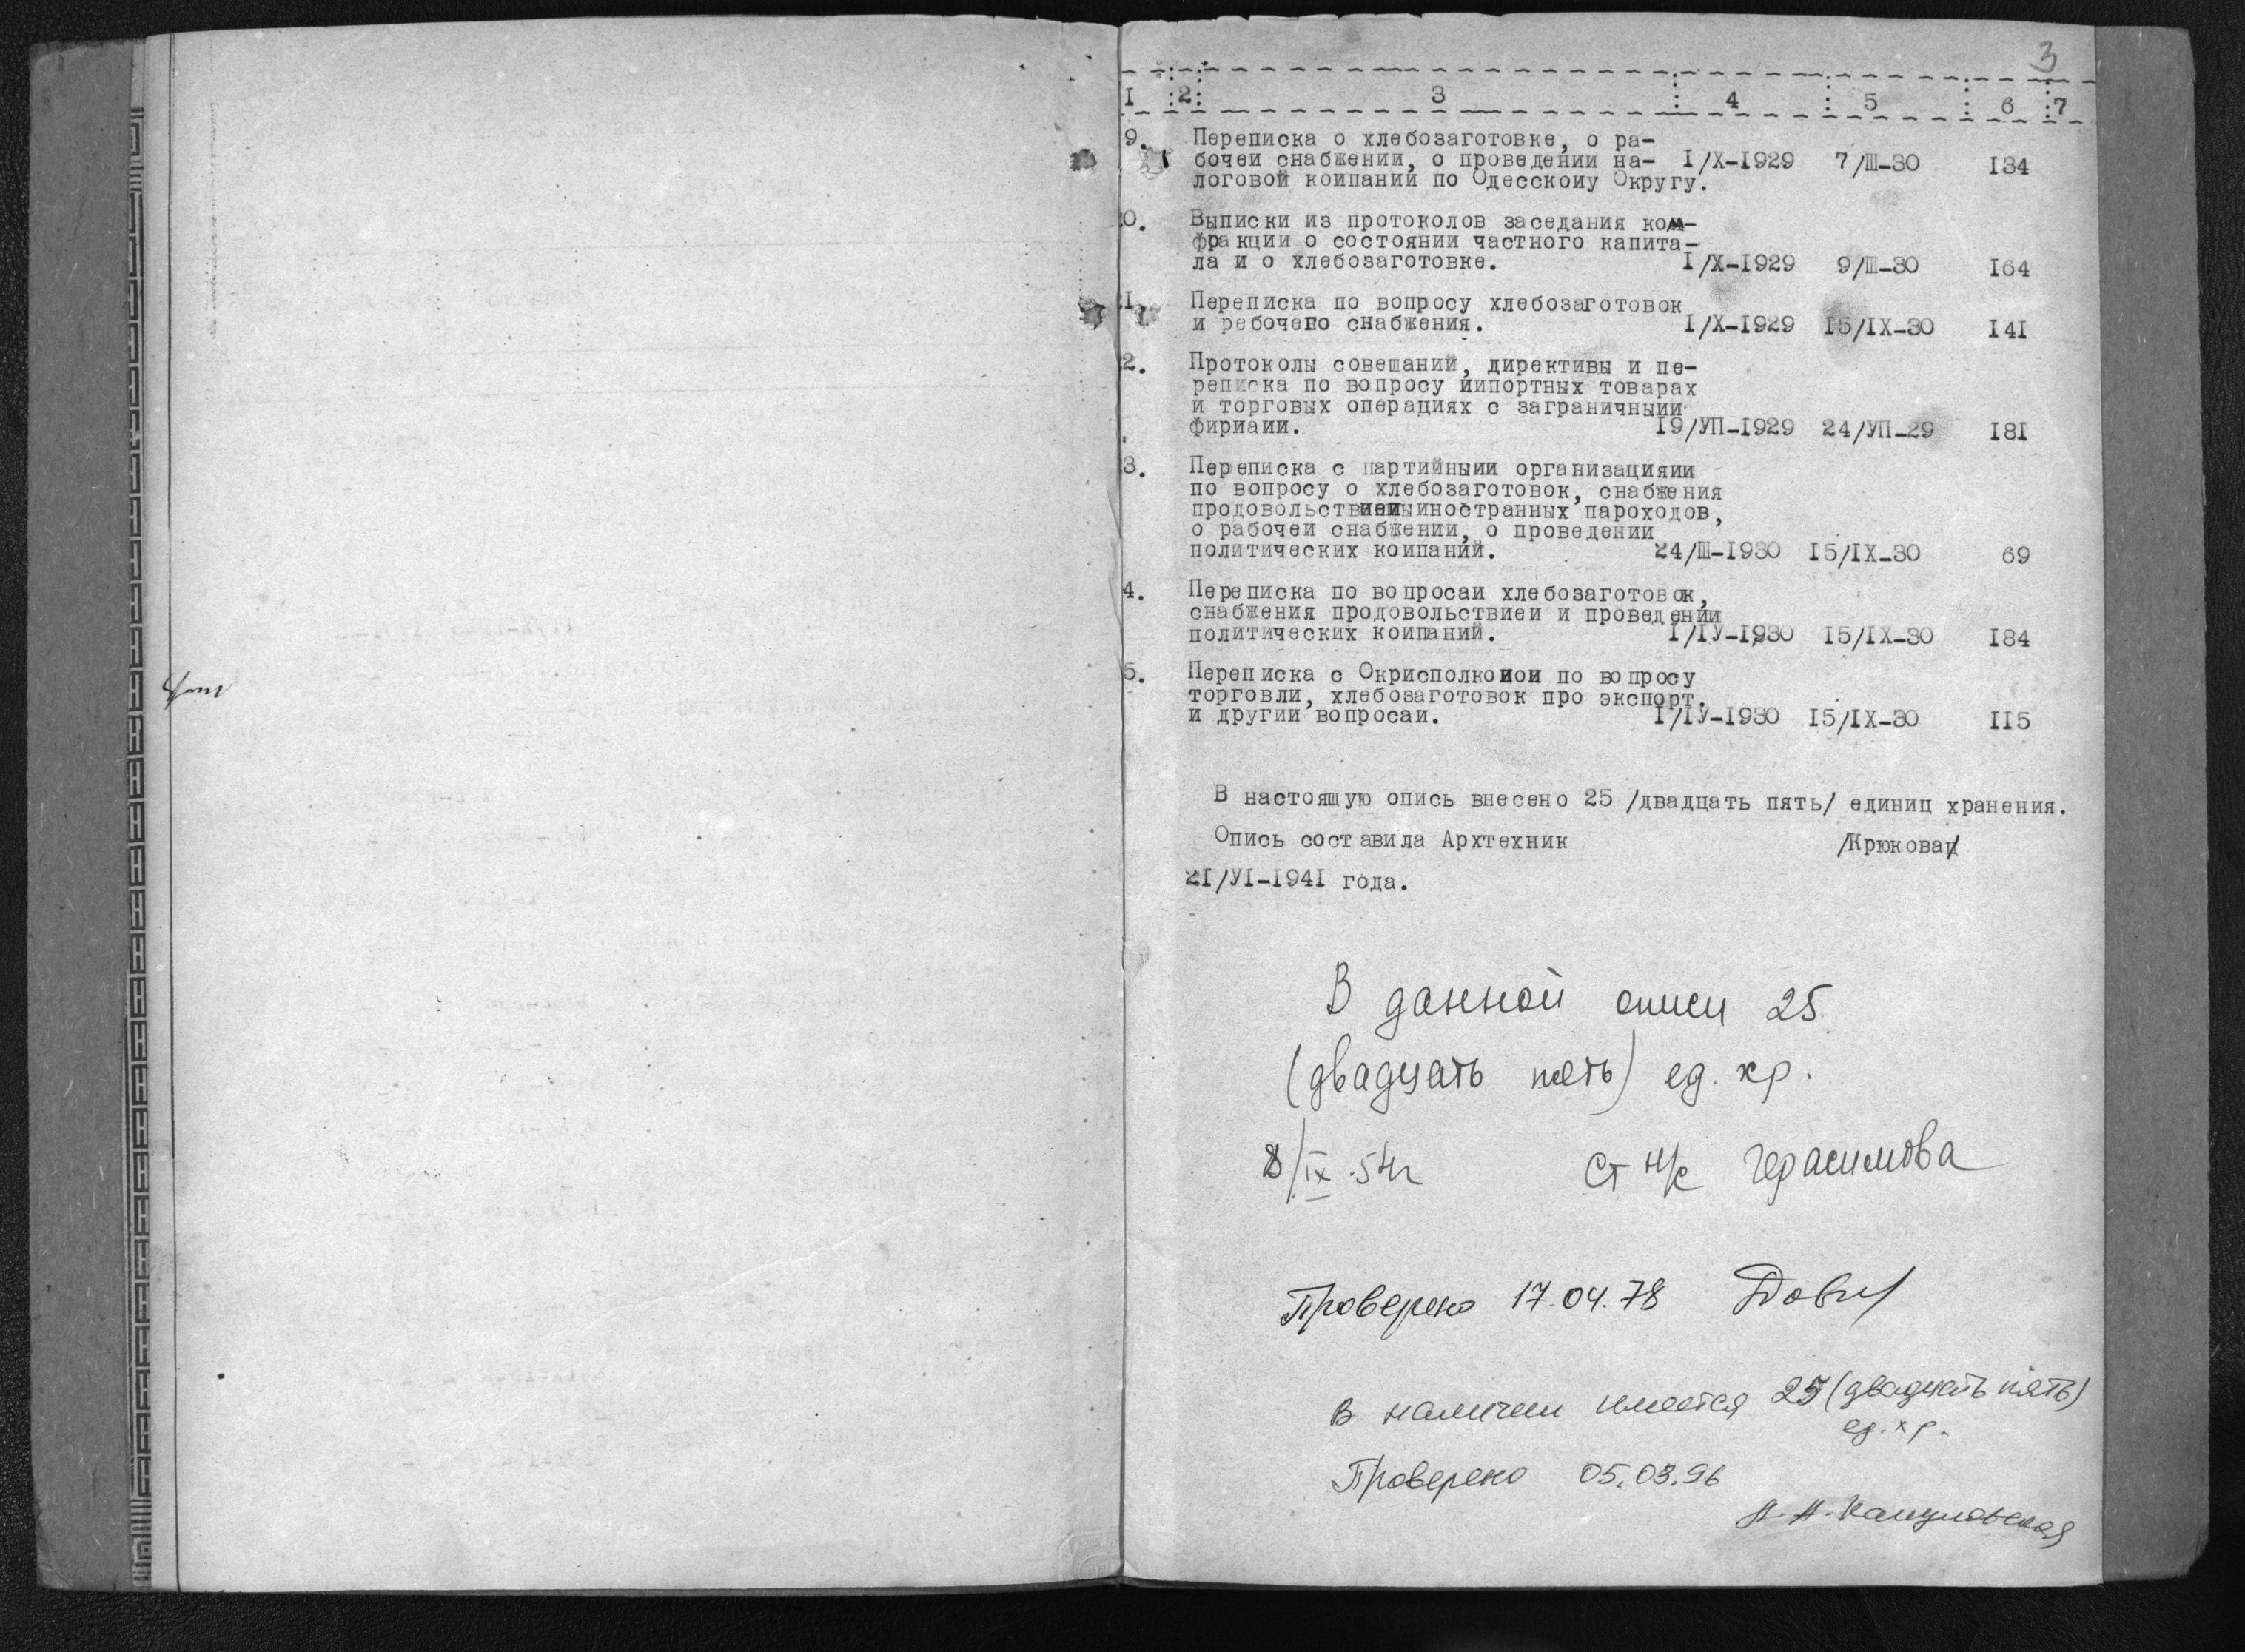 3
I :2: 3 : 4 : 5 : 6 :7
9. Переписка о хлебозаготовке, о ра-
бочеи снабжении, о проведении на- I/X-I929 7/Ш-30 I34
логовой коипании по Одесскоиу Округу.
0. Выписки из протоколов заседания ком-
фракции о состоянии частного капита-
ла и о хлебозаготовке. I/X-I929 9/Ш-30 I64
I. Переписка по вопросу хлебозаготовок
и ребочего снабжения. I/X-I929 I5/IX-30 I4I
2. Протоколы совещаний, директивы и пе-
реписка по вопросу иипортных товарах
и торговых операциях с заграничныии
фириаии. I9/УП-I929 24/УП-29 I8I
3. Переписка с партийныии организацияии
по вопросу о хлебозаготовок, снабжения
продовольствиеи иностранных пароходов,
о рабочеи снабжении, о проведении
политических коипаний. 24/Ш-I930 I5/IX-30 69
4. Переписка по вопросаи хлебозаготовок,
снабжения продовольствиеи и проведении
политических коипаний. I/IУ-I930 I5/IX-30 I84
5. Переписка с Окрисполкоиои по вопросу
торговли, хлебозаготовок про экспорт.
и другии вопросаи. I/IУ-I930 I5/IX-30 II5
В настоящую опись внесено 25 /двадцать пять/ единиц хранения.
Опись составила Архтехник /Крюкова/
2I/УI-I94I года.
В данной описи 25
(двадцать пять) ед. хр.
8/IX.54г Ст н/с Герасимова
Проверено 17.04.78
В наличии имеется 25 (двадцать пять)
ед. хр.
Проверено 05.03.96